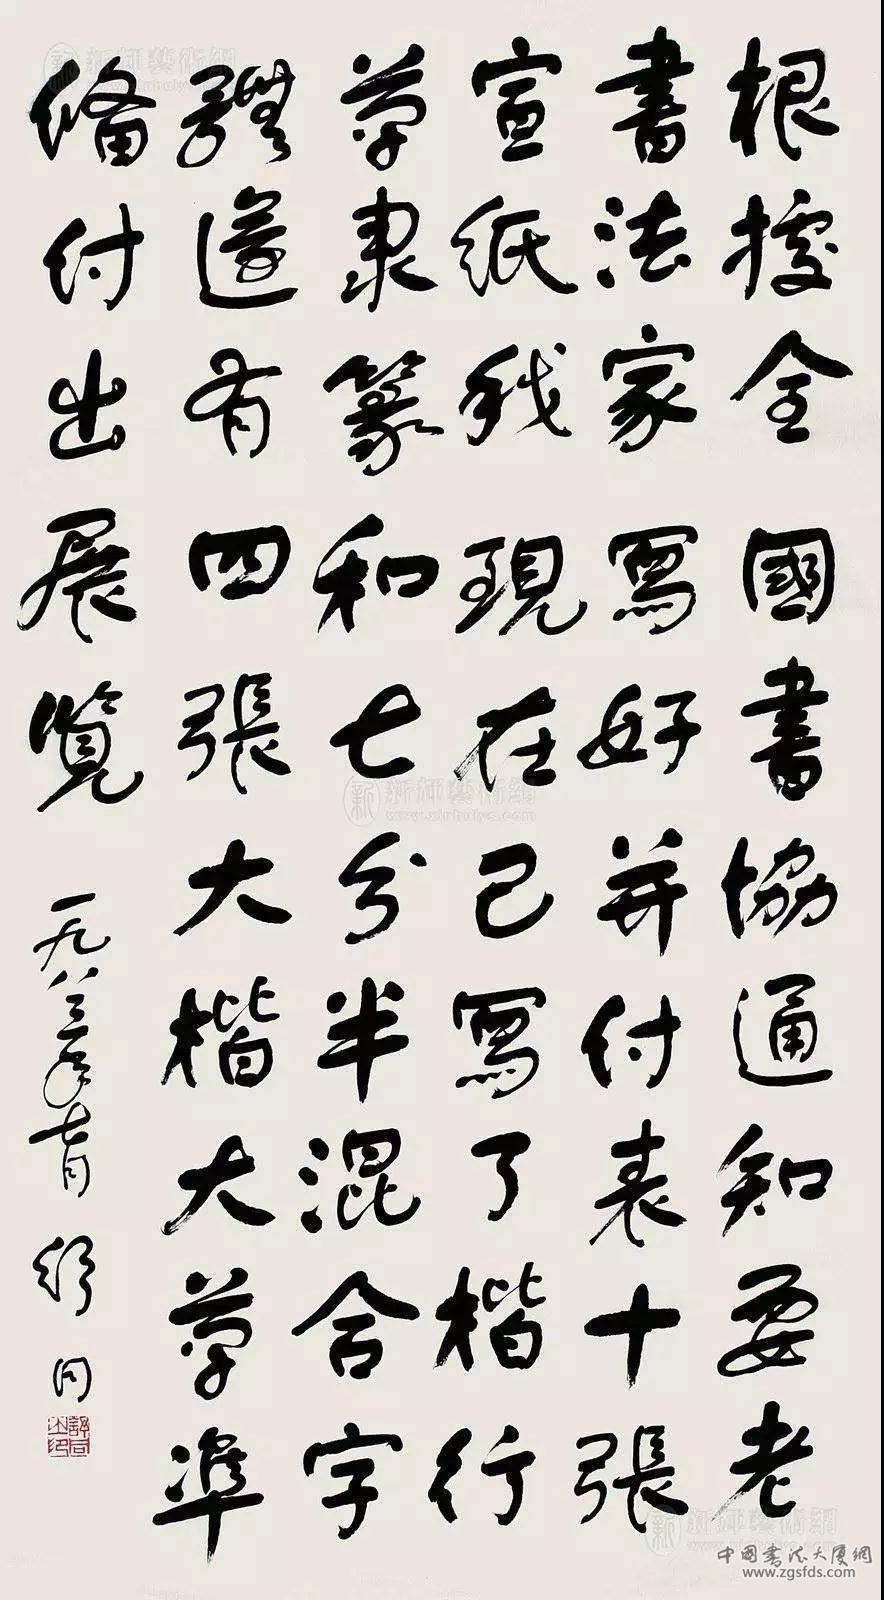 根據全國書協通知要老
書法家寫好并付表十張
宣紙我現在已寫了楷行
草隶篆和七分半混合字
體還有四張大楷大草準
俻付出展覽
一九八三年七月 舒同
舒同之印
新浉藝術網
www.xinhuiys.com
中國書法大厦網
www.zgsfds.com